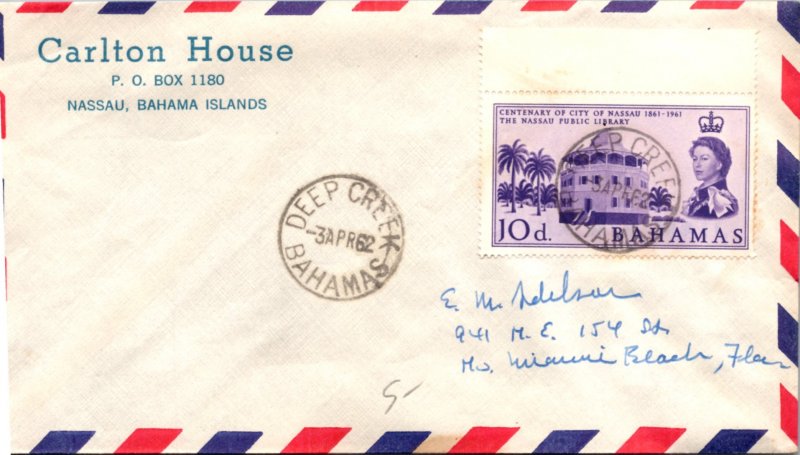 Carlton House
P. O. BOX 1180
NASSAU, BAHAMA ISLANDS
CENTENARY OF CITY OF NASSAU 1861-1961
THE NASSAU PUBLIC LIBRARY
10d. BAHAMAS
DEEP CREEK
3APR62
BAHAMAS
DEEP CREEK
-3APR62
BAHAMAS
E. M. Adelson
941 N.E. 154 St.
No. Miami Beach, Fla
5-